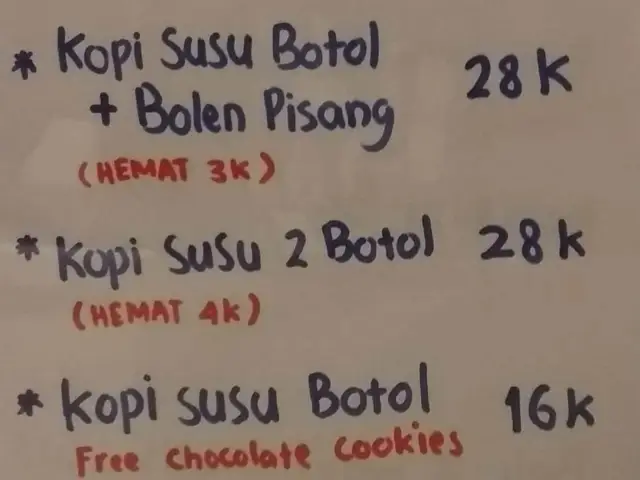 * Kopi Susu Botol 28K
+ Bolen Pisang
(HEMAT 3K)
* Kopi Susu 2 Botol 28K
(HEMAT 4K)
* Kopi Susu Botol 16K
Free Chocolate Cookies